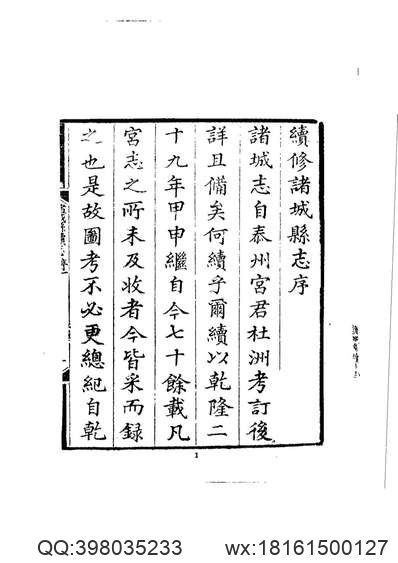 續修諸城縣志序
諸城志自泰州宮君杜洲考訂後
詳且備矣何續乎爾續以乾隆二
十九年甲申繼自今七十餘載凡
宮志之所未及收者今皆采而録
之也是故圖考不必更總紀自乾
1
QQ:398035233
wx:18161500127